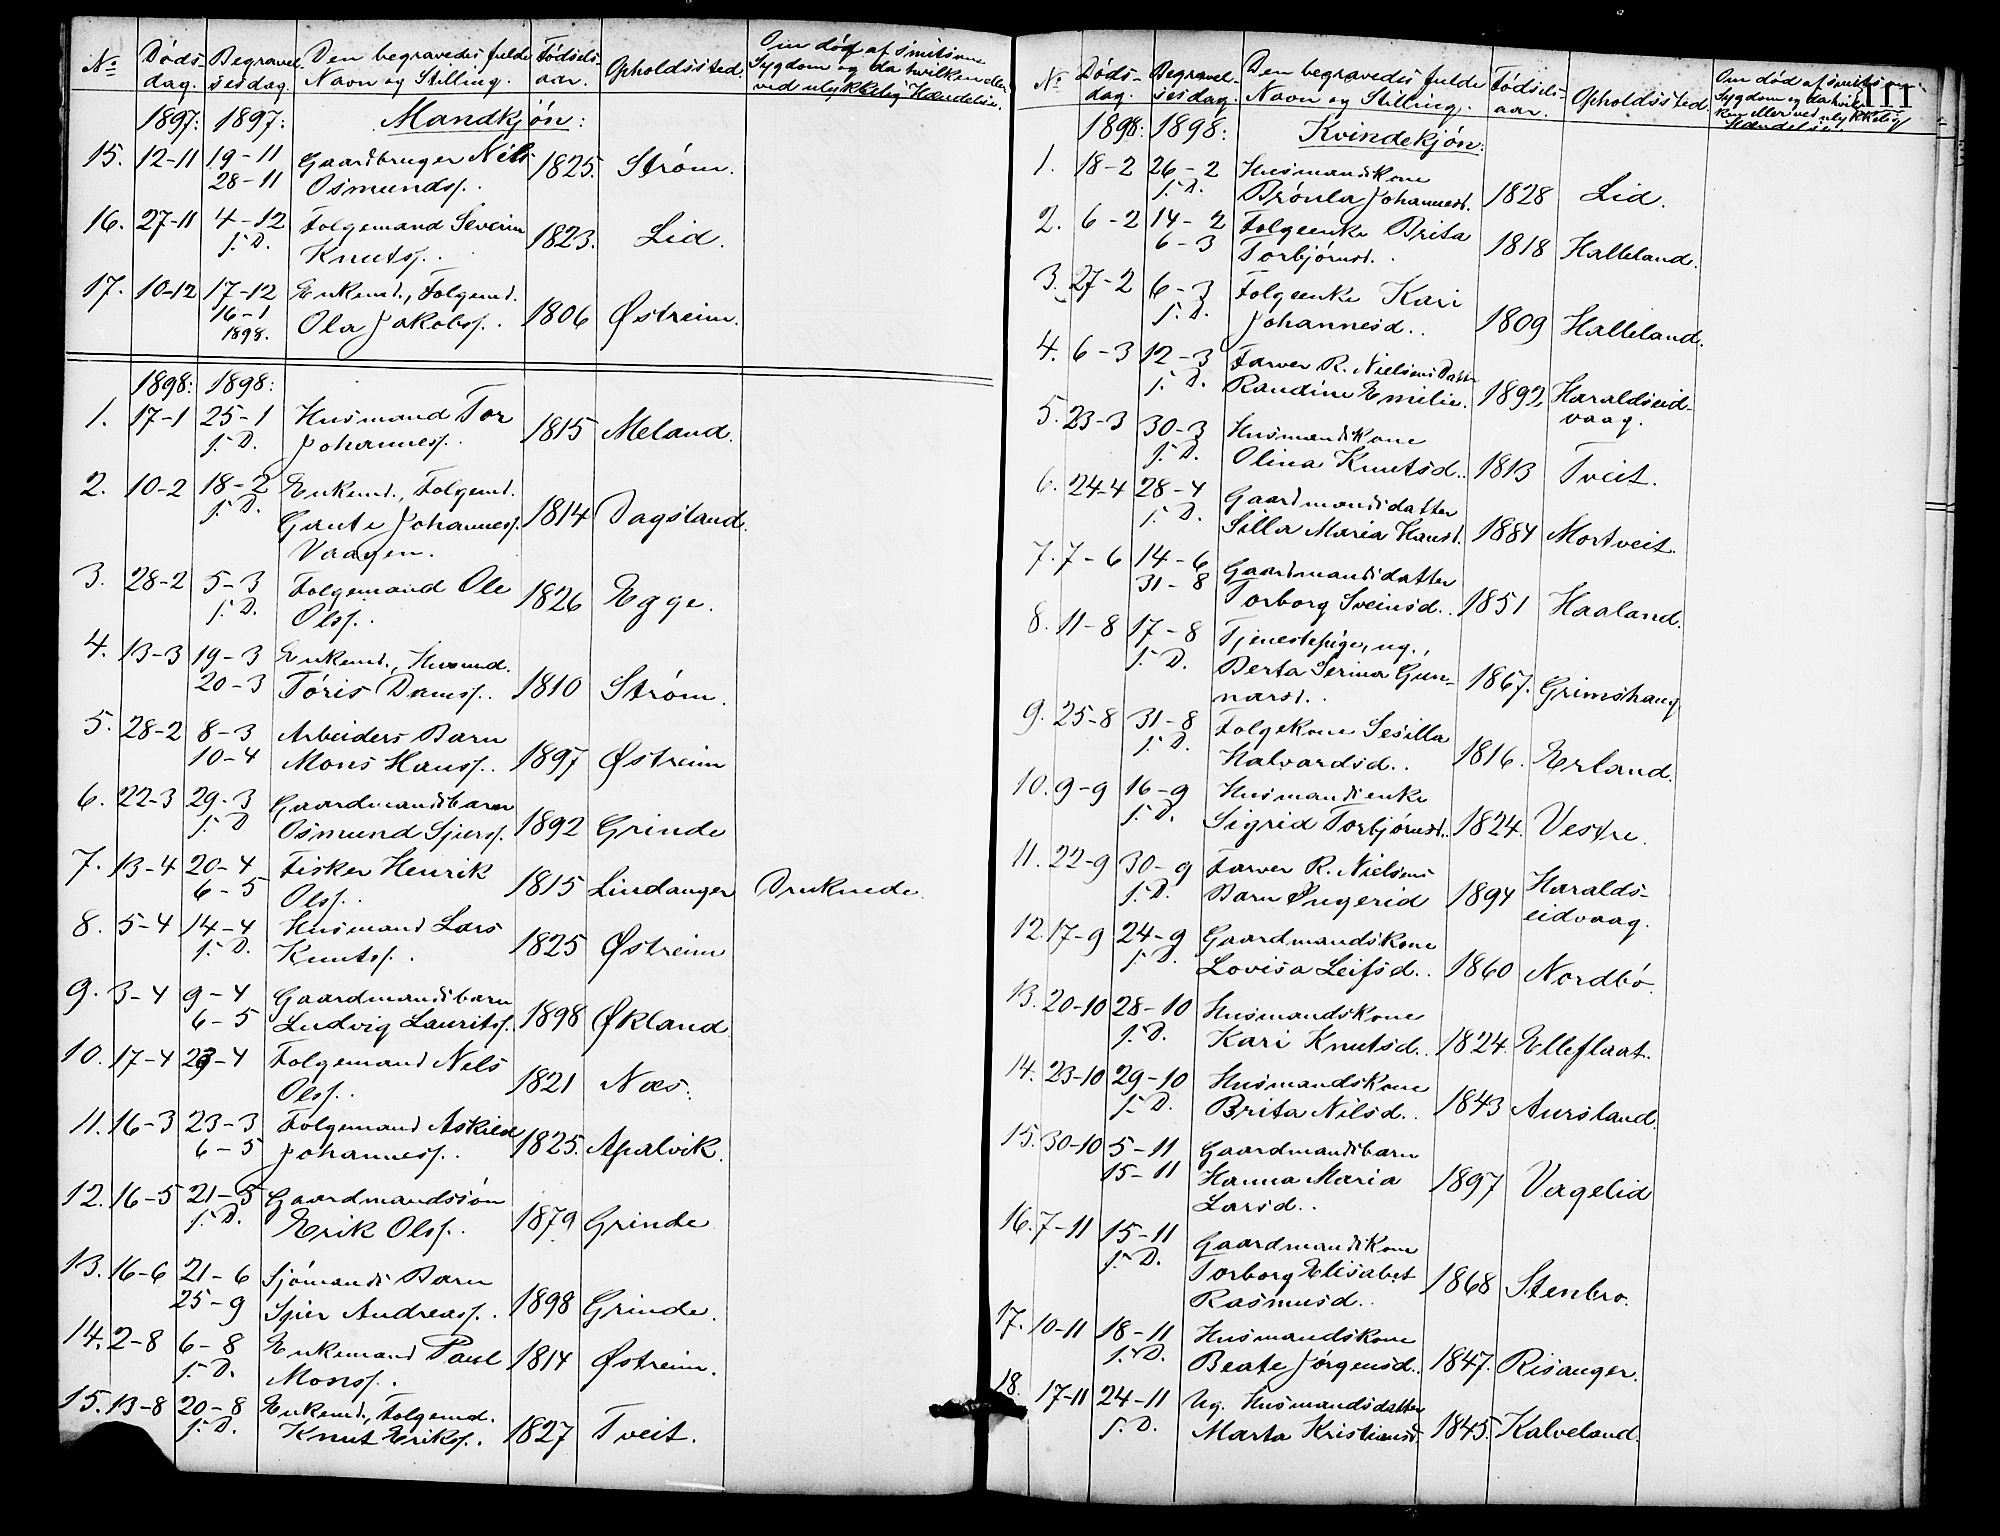 No Døds- Begravel- Den begravedes fulde Fødsels- Opholdssted. Om død af smitsom
dag. sesdag. Navn og Stilling. aar. Sygdom og da hvilken eller
ved ulykkelig Hændelse.
1897: 1897: Mandkjøn:
15. 12-11 19-11 Gaardbruger Nils 1825. Strøm.
28-11 Osmunds.
16. 27-11 4-12 Folgemand Severin 1823. Lid.
s. D. Knuts.
17. 10-12 17-12 Enkemd., Folgemd. 1806 Østreim.
16-1 Ola Jakobs.
1898.
1898: 1898:
1. 17-1 25-1 Husmand Tor 1815 Meland.
s. D. Johannes.
2. 10-2 18-2 Enkemd., Folgemd. 1814 Dagsland.
s. D. Gaute Johannes.
Vaagen.
3. 28-2 5-3 Folgemand Ole 1826 Egge.
s. D. Ols.
4. 13-3 19-3 Enkemd., Husmd. 1810 Strøm.
20-3 Tøris Dans.
5. 28-2 8-3 Arbeiders Barn 1897 Østreim
10-4 Mons Hans.
6. 22-3 29-3 Gaardmandsbarn 1892 Grinde
s. D Osmund Sjurs.
7. 13-4 20-4 Fisker Henrik 1815 Lindanger Druknede.
6-5 Ols.
8. 5-4 14-4 Husmand Lars 1825 Østreim
s. D. Knuts.
9. 3-4 9-4 Gaardmandsbarn 1898 Økland
6-5 Ludvig Laurits.
10. 17-4 23-4 Folgemand Nels 1821 Næs.
Ols.
11. 16-3 23-3 Folgemand Askild 1825. Apalvik.
6-5 Johannes.
12. 16-5 21-5 Gaardmandssøn 1879 Grinde
s. D. Erik Ols.
13. 16-6 21-6 Sjømands Barn 1898 Grinde.
25-9 Sjur Andreas.
14. 2-8 6-8 Enkemand Paul 1814 Østreim.
s. D. Mons.
15. 13-8 20-8 Enkemd., Folgemd. 1827 Tveit.
s. D. Knut Eriks.
III
No Døds- Begravel- Den begravedes fulde Fødsels- Opholdssted. Om død af smitsom
dag. sesdag. Navn og Stilling. aar. Sygdom og da hvil-
ken eller ved ulykkelig
Hændelse.
1898: 1898: Kvindekjøn:
1. 18-2 26-2 Husmandskone 1828 Lid.
s. D. Brønla Johannesd.
2. 6-2 14-2 Folgeenke Brita 1818 Halleland.
6-3 Torbjørnsd.
3. 27-2 6-3 Folgeenke Kari 1809 Halleland.
s. D. Johannesd.
4. 6-3 12-3 Farver R. Nielsens Datter 1892 Haraldseid-
s. D. Randine Emilie. vaag.
5. 23-3 30-3 Husmandskone 1813 Tveit.
s. D. Olina Knutsd.
6. 24-4 28-4 Gaardmandsdatter 1884 Mortveit.
s. D. Silla Maria Hansd.
7. 7-6 14-6 Gaardmandsdatter 1851 Haaland.
31-8 Torborg Sveinsd.
8. 11-8 17-8 Tjenestepige, ug., 1867. Grimshaug
s. D. Berta Serina Gun-
narsd.
9. 25-8 31-8 Folgekone Sesilla 1816. Erland.
s. D. Halvardsd.
10. 9-9 16-9 Husmandsenke 1824. Vestre.
s. D. Sigrid Torbjørnsd.
11. 22-9 30-9 Farver R. Nielsens 1894 Haralds-
s. D. Barn Ingerid eidvaag.
12. 17-9 24-9 Gaardmandskone 1860 Nordbø.
s. D. Lovisa Leifsd.
13. 20-10 28-10 Husmandskone 1824. Elleflaat.
s. D. Kari Knutsd.
14. 23-10 29-10 Husmandskone 1843 Aursland.
s. D. Brita Nilsd.
15. 30-10 5-11 Gaardmandsbarn 1897 Vagelid
15-11 Hanna Maria
Larsd.
16. 7-11 15-11 Gaardmandskone 1868 Stenbro.
s. D. Torborg Elisabet
Rasmusd.
17. 10-11 18-11 Husmandskone 1847. Risanger.
s. D. Beate Jørgensd.
18. 17-11 24-11 Ug. Husmandsdatter 1845. Kalveland.
s. D. Marta Kristiansd.